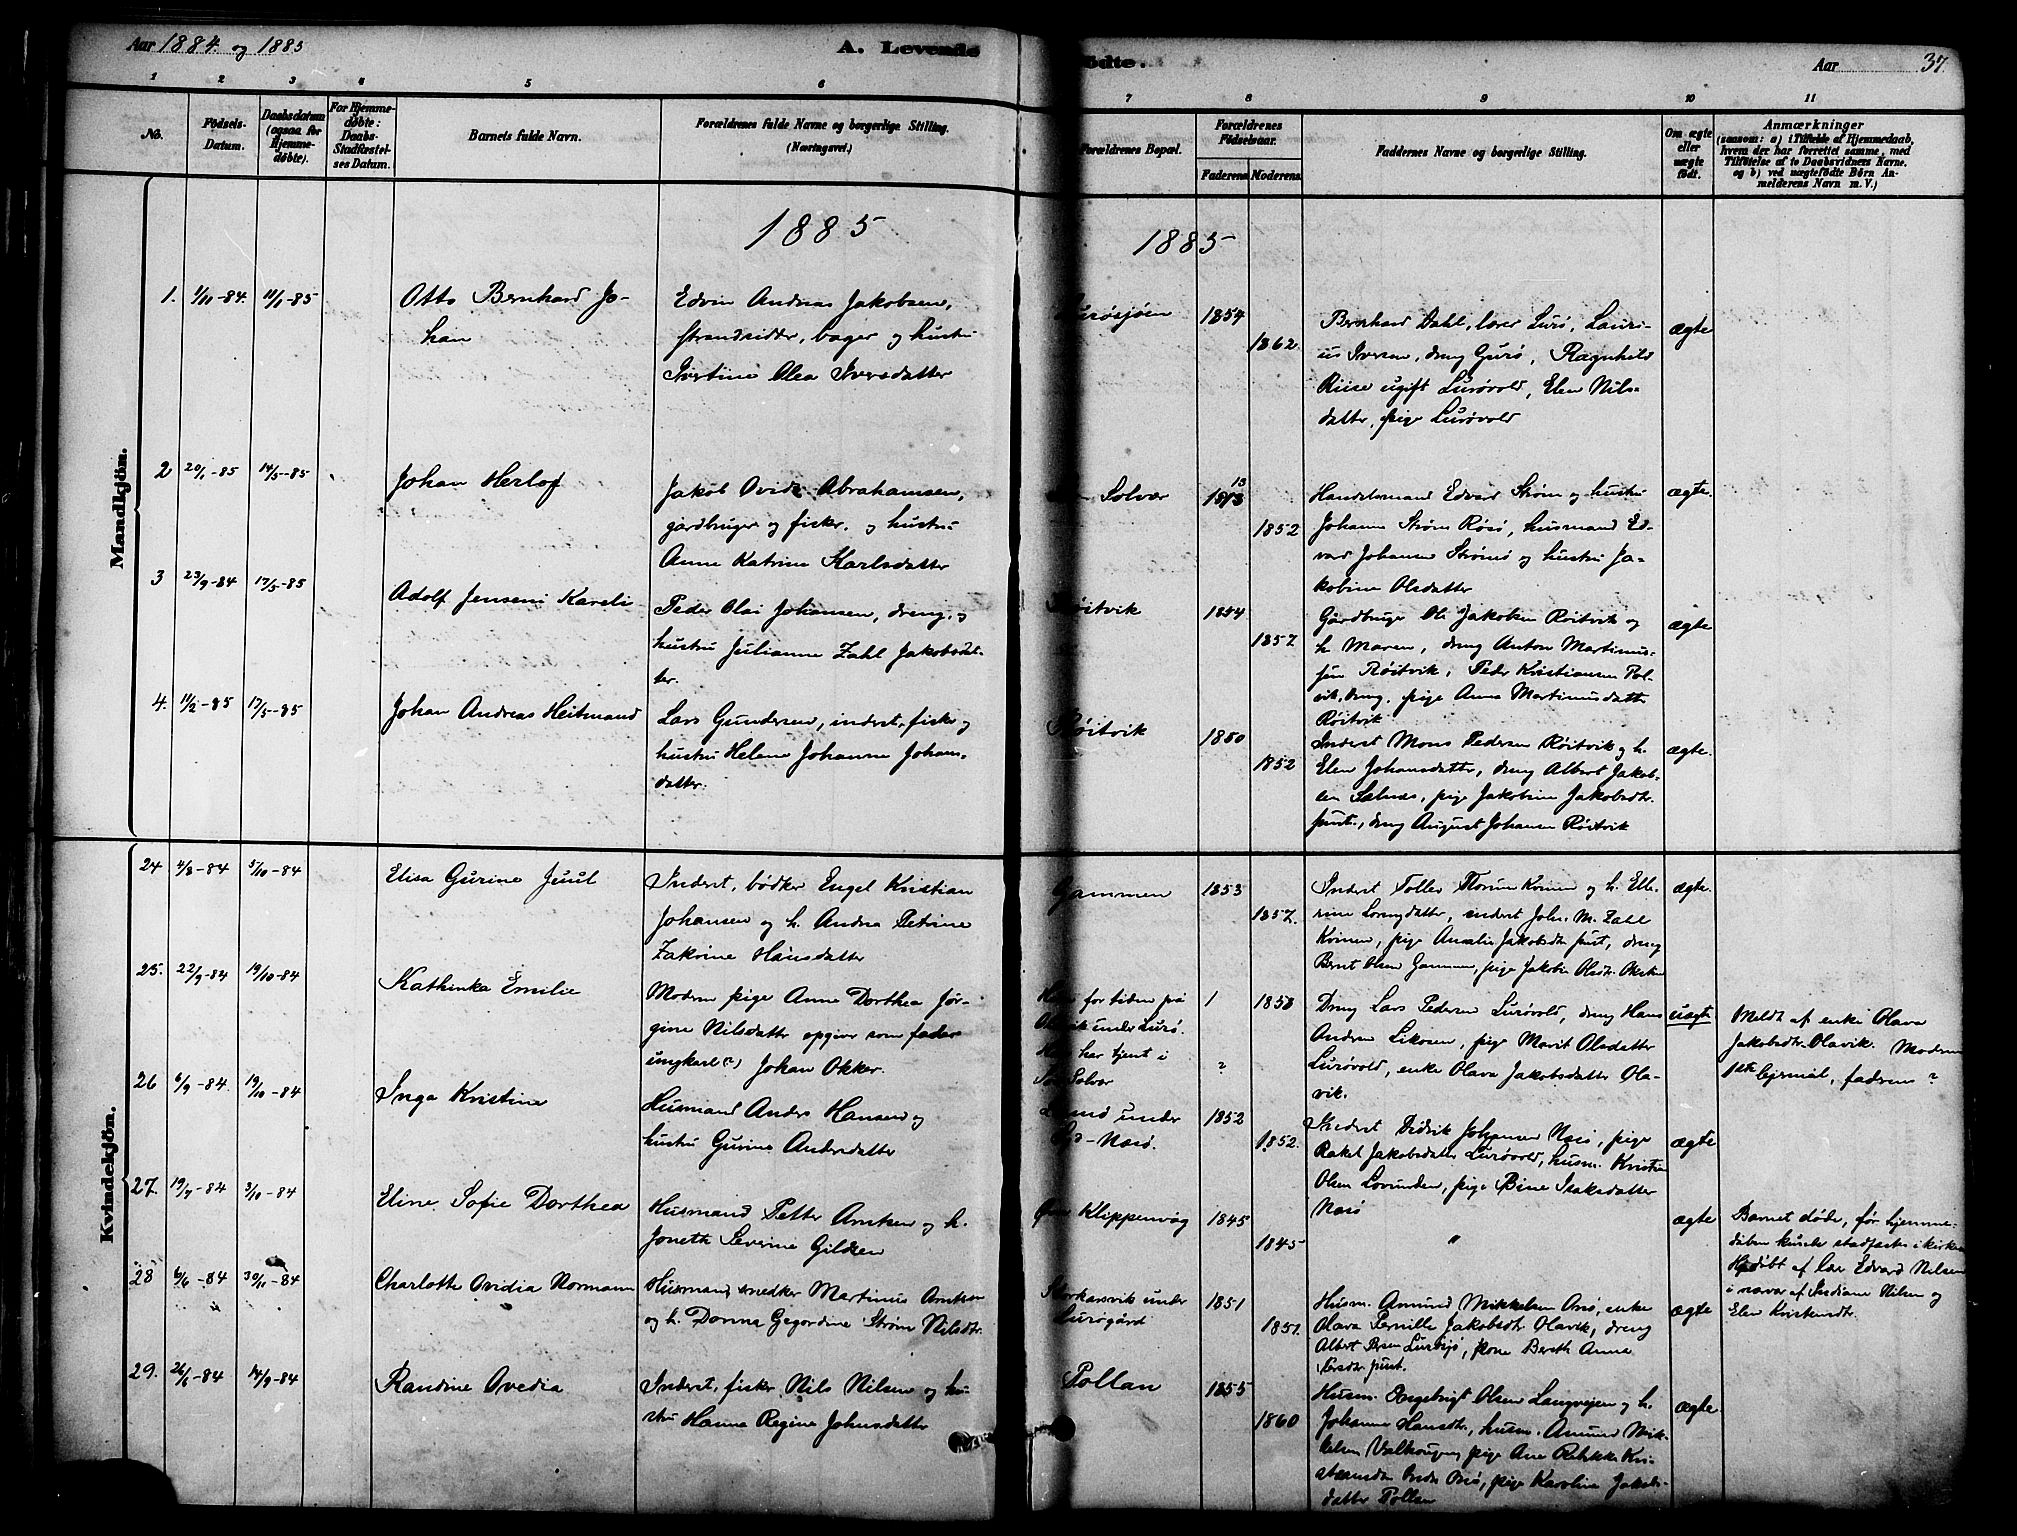 Aar 1884. og 1885
A. Levende
ödte.
Aar 37
1 2 3 4 5 6 7 8 9 10 11
No.
Födsels-
Datum.
Daabsdatum
(ogsaa for
Hjemme-
döbte).
For Hjemme-
döbte:
Daabs-
Stadfæstel-
ses Datum.
Barnets fulde Navn.
Forældrenes fulde Navne og borgerlige Stilling.
(Næringsvei.)
Forældrenes Bopæl.
Forældrenes
Födselsaar.
Faderens Moderens
Faddernes Navne og borgerlige Stilling.
Om ægte
eller
uægte
födt.
Anmærkninger
(saasom: a) i Tilfælde af Hjemmedaab,
hvem der har forrettet samme, med
Tilföielse af to Daabsvidners Navne.
og b) ved uægtefödte Börn An-
melderens Navn m. V.)
1885
1885
Mandkjön.
1. 1/10-84. 11/1-85
Otto Bernhard Jo-
han
Edvin Andreas Jakobsen,
strandsidder, bager og hustru
Ivertine Olea Iversdatter
1854
1862
Bernhard Dahl, lærer Lurö, Lauri-
us Iversen, dreng Gurö, Ragnhild
Riise ugift Lurövold, Elen Nils-
datter, pige Lurövold
ægte
2 20/1-85 14/5-85
Johan Herlof
Jakob Ovidi Abrahamsen,
gardbruger og fisker, og hustru
Anne Katrine Karlsdatter
Solvær
1852
Handelsmand Edvard Ström og hustru
Johanna Ström Rösö, husmand Ed-
vard Johansen Strömö og hustru Ja-
kobine Olsdatter
ægte.
3 23/9-84 17/5-85
Adolf Jenseni Kareli
Peder Olai Johansen, dreng, og
hustru Julianne Zahl Jakobsdat-
ter.
Röitvik
1854
1857
Gårdbruger Ole Jakobsen Röitvik og
h. Maren, dreng Anton Martinus-
sen Röitvik, Peder Kristiansen Sol-
vik, dreng, pige Anna Martinusdatter
Röitvik
ægte
4. 11/2-85 17/5-85
Johan Andreas Heitmand
Lars Gundersen, inderst, fisker og
hustru Helene Johanna Johans-
datter.
Röitvik
1850
1852
Inderst Mons Pedersen Röitvik og h.
Elen Johansdatter, dreng Albert Jakob-
sen Selnæs, pige Jakobine Jakobsdtr.
sust., dreng August Johansen Röitvik
ægte.
Kvindekjön.
24 4/8-84 5/10-84
Elisa Gurine Juul
Inderst, bödker Engel Kristian
Johansen og h. Andrea Petrine
Zakrine Hansdatter
Gammen
1853
1857.
Inderst Toller Thorun Kvinen og h. Elle-
rine Lorngdatter, inderst John. M. Zahl
Kvinen, pige Amalie Jakobsdtr sust, dreng
Bernt Olsen Gammen, pige Jakobin Olsdtr.
ægte.
25. 22/9-84 19/10-84
Kathinka Emilie
Moderen pige Anne Dorthea Jör-
gine Nilsdatter opgiver som fader
ungkarl (?) Johan Okker.
for tiden på
Olavik under Lurö.
Hun har tjent i
Solvær
1
?
1858
Dreng Lars Pedersen Lurövold, dreng Hans
Andrea Likosen, pige Marit Olsdatter
Lurövold, enke Olava Jakobsdatter Ola-
vik.
uægte
Meldt af enke Olava
Jakobsdtr. Olavik. Moderens
1ste leiermål, fadrens ?
26 6/9-84. 19/10-84
Inga Kristine
Husmand Anders Hansen og
hustru Gurine Andersdatter
under
Syd-Næsö.
1852
1852.
Inderst Didrik Johansen Næsö, pige
Rakel Jakobsdatter Lurövold, husm. Kristen
Olsen Lovunden, pige Bine Isaksdatter
Næsö
ægte
27. 19/7-84 3/10-84
Eline Sofie Dorthea
Husmand Petter Arntsen og h.
Joneth Severine Gildsen
Klippenvåg
1845
1845
"
ægte
Barnet döde, för hjemme-
dåben kunde stadfæstes i kirken
Hjdöbt af lær Edvard Nilsen
i nævær af Indiane Nilsen og
Elen Kristensdtr.
28 6/6-84 30/11-84
Charlotte Ovidia Normann
Husmand, snedker Martinus Arntsen
og h. Dorina Gegordine Ström Nilsdtr.
Storkarsvik under
Lurögård
1851
1851.
Husm. Amund Mikkelsen Onö, enke
Olava Pernille Jakobsdtr Olavik, dreng
Albert Persen Lurösjö, kone Bereth Anna
Persdtr. sust.
ægte
29. 26/6-84 14/9-84
Randine Ovedia
Inderst, fisker Nils Nilsen og hu-
stru Hanna Regine Johnsdatter
Pollan
1855
1860
Husm. Engebrigt Olsen Langvejen og h.
Johanna Hansdtr., husm. Amund Mik-
kelsen Valhaugen, pige Ane Rebekka Kri-
stensdtr Onö, pige Karoline Jakobs-
datter Pollen
ægte.